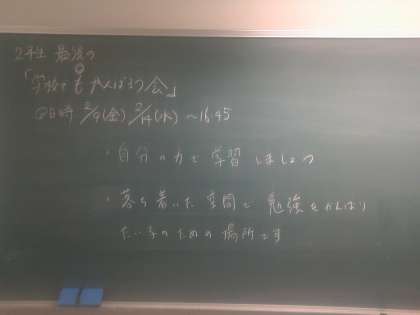 2年生 最後の
「学校でもがんばろう会」
◎日時 2/9(金) 2/14(水) ～16:45
・自分の力で 学習 しましょう
・落ち着いた空間で 勉強をがんばり
たい子のための場所です